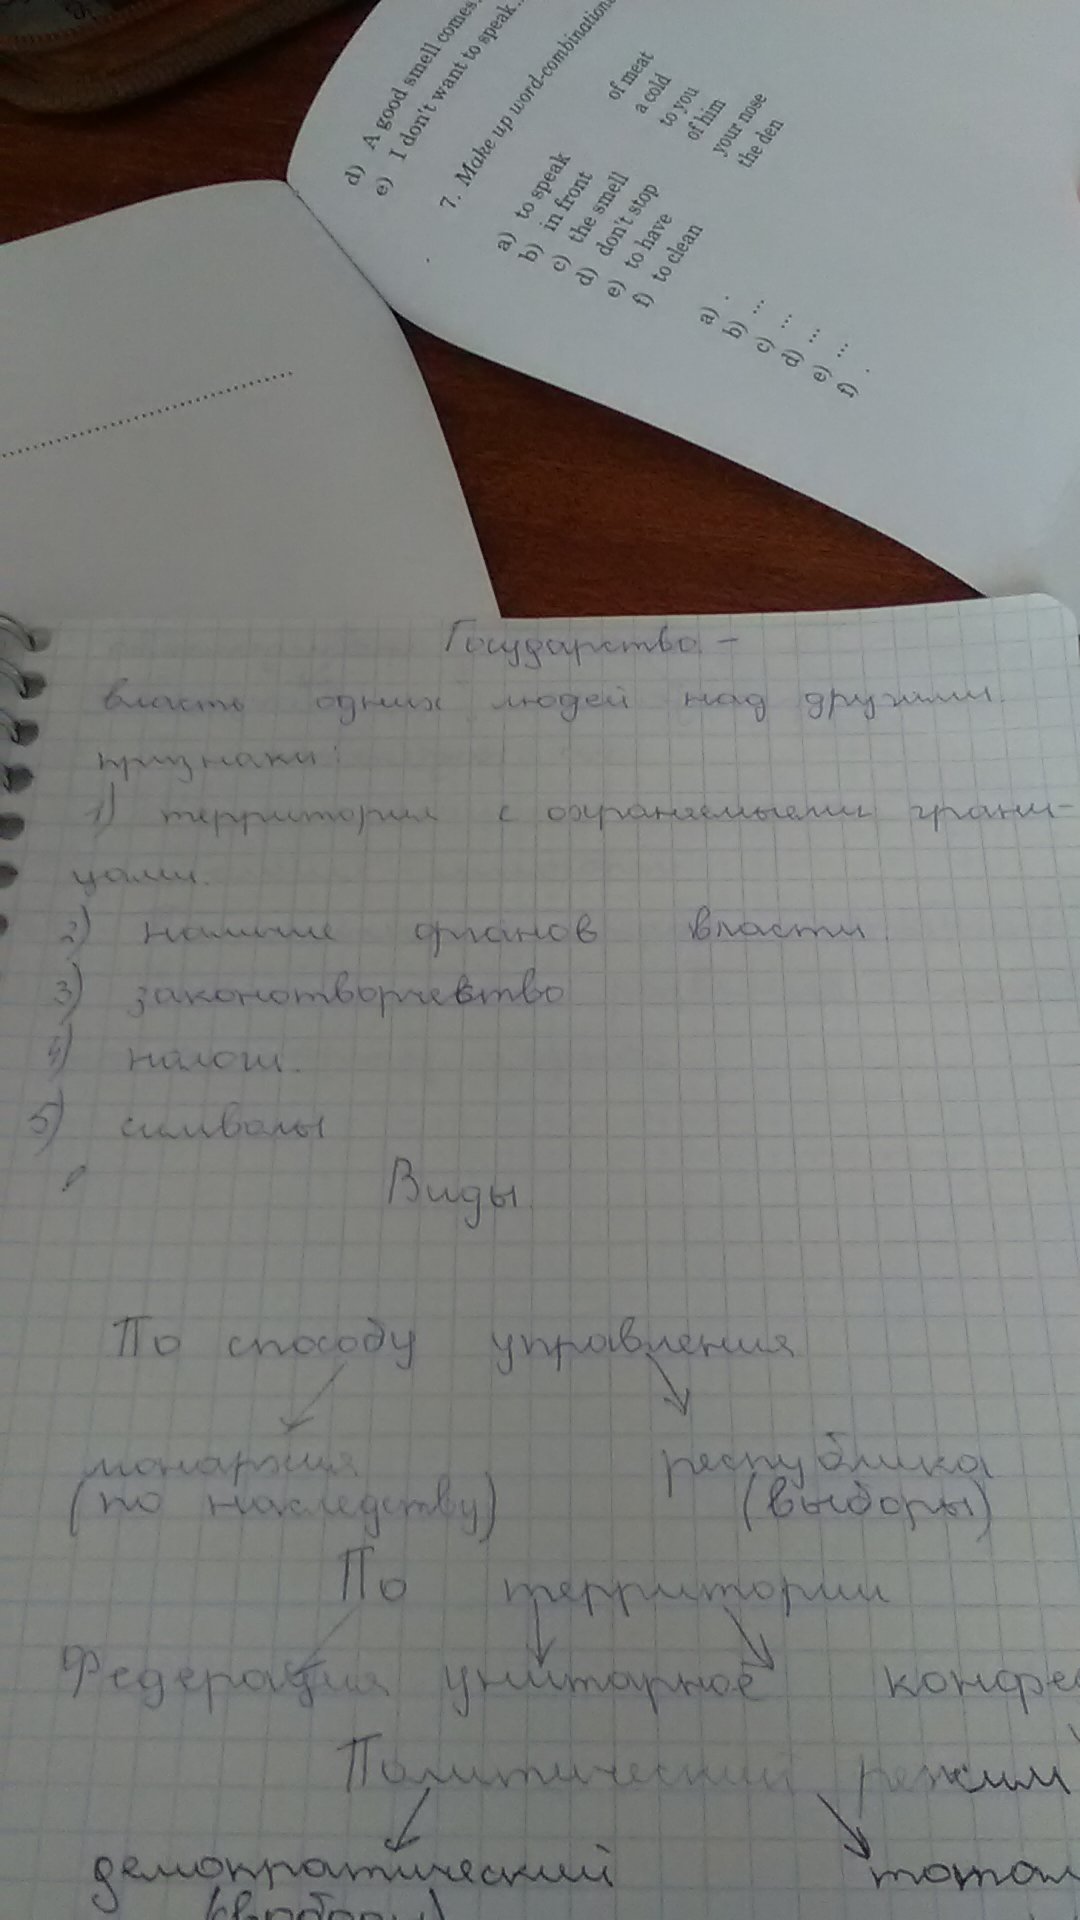 d) A good smell comes
e) I don't want to speak
7. Make up word-combination
a) to speak
b) in front
c) the smell
d) don't stop
e) to have
f) to clean
of meat
a cold
to you
of him
your nose
the den
a) .
b) ...
c) ...
d) ...
e) ...
f) .
Государство –
власть одних людей над другими.
признаки:
1) территория с охраняемыми грани-
цами.
2) наличие органов власти.
3) законотворчество
4) налоги.
5) символы
Виды.
По способу управления
монархия республика
(по наследству) (выборы)
По территории
Федерация унитарное конфе
Политический режим
демократический тотал